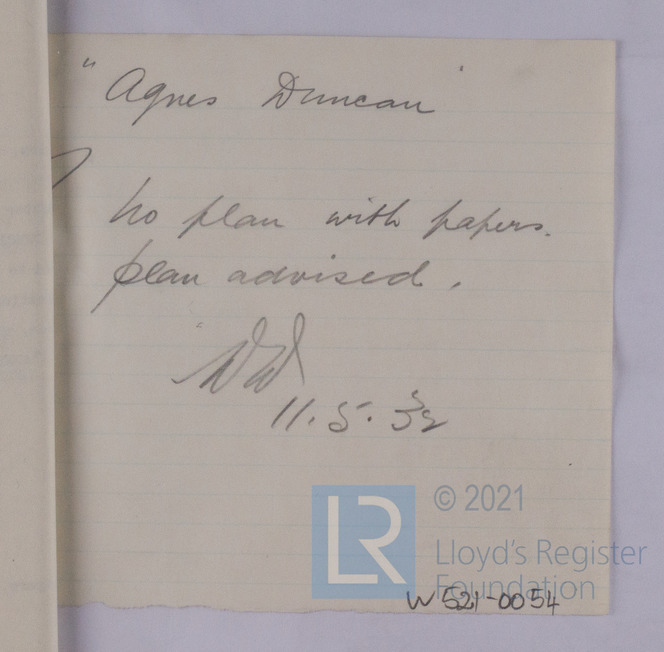 "Agnes Duncan"
No plan with papers.
plan advised.
11.5.32
LR
© 2021
Lloyd's Register
Foundation
W521-0054